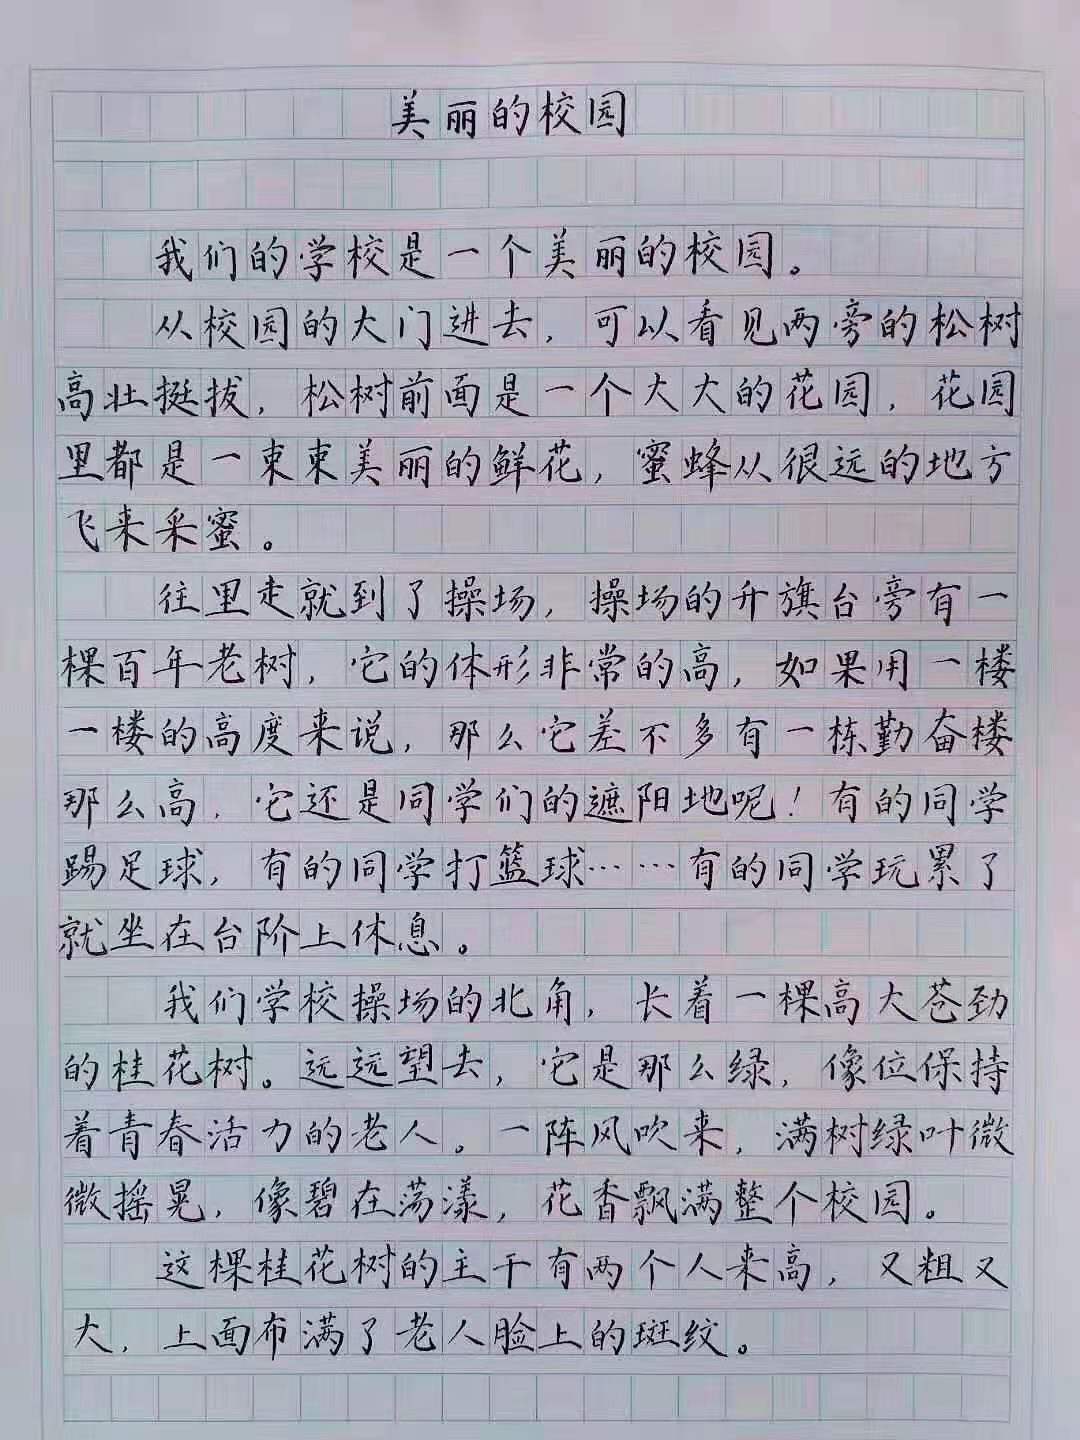 美丽的校园
我们的学校是一个美丽的校园。
从校园的大门进去，可以看见两旁的松树
高壮挺拔，松树前面是一个大大的花园，花园
里都是一束束美丽的鲜花，蜜蜂从很远的地方
飞来采蜜。
往里走就到了操场，操场的升旗台旁有一
棵百年老树，它的体形非常的高，如果用一楼
一楼的高度来说，那么它差不多有一栋勤奋楼
那么高，它还是同学们的遮阳地呢！有的同学
踢足球，有的同学打篮球……有的同学玩累了
就坐在台阶上休息。
我们学校操场的北角，长着一棵高大苍劲
的桂花树。远远望去，它是那么绿，像位保持
着青春活力的老人。一阵风吹来，满树绿叶微
微摇晃，像碧在荡漾，花香飘满整个校园。
这棵桂花树的主干有两个人来高，又粗又
大，上面布满了老人脸上的斑纹。